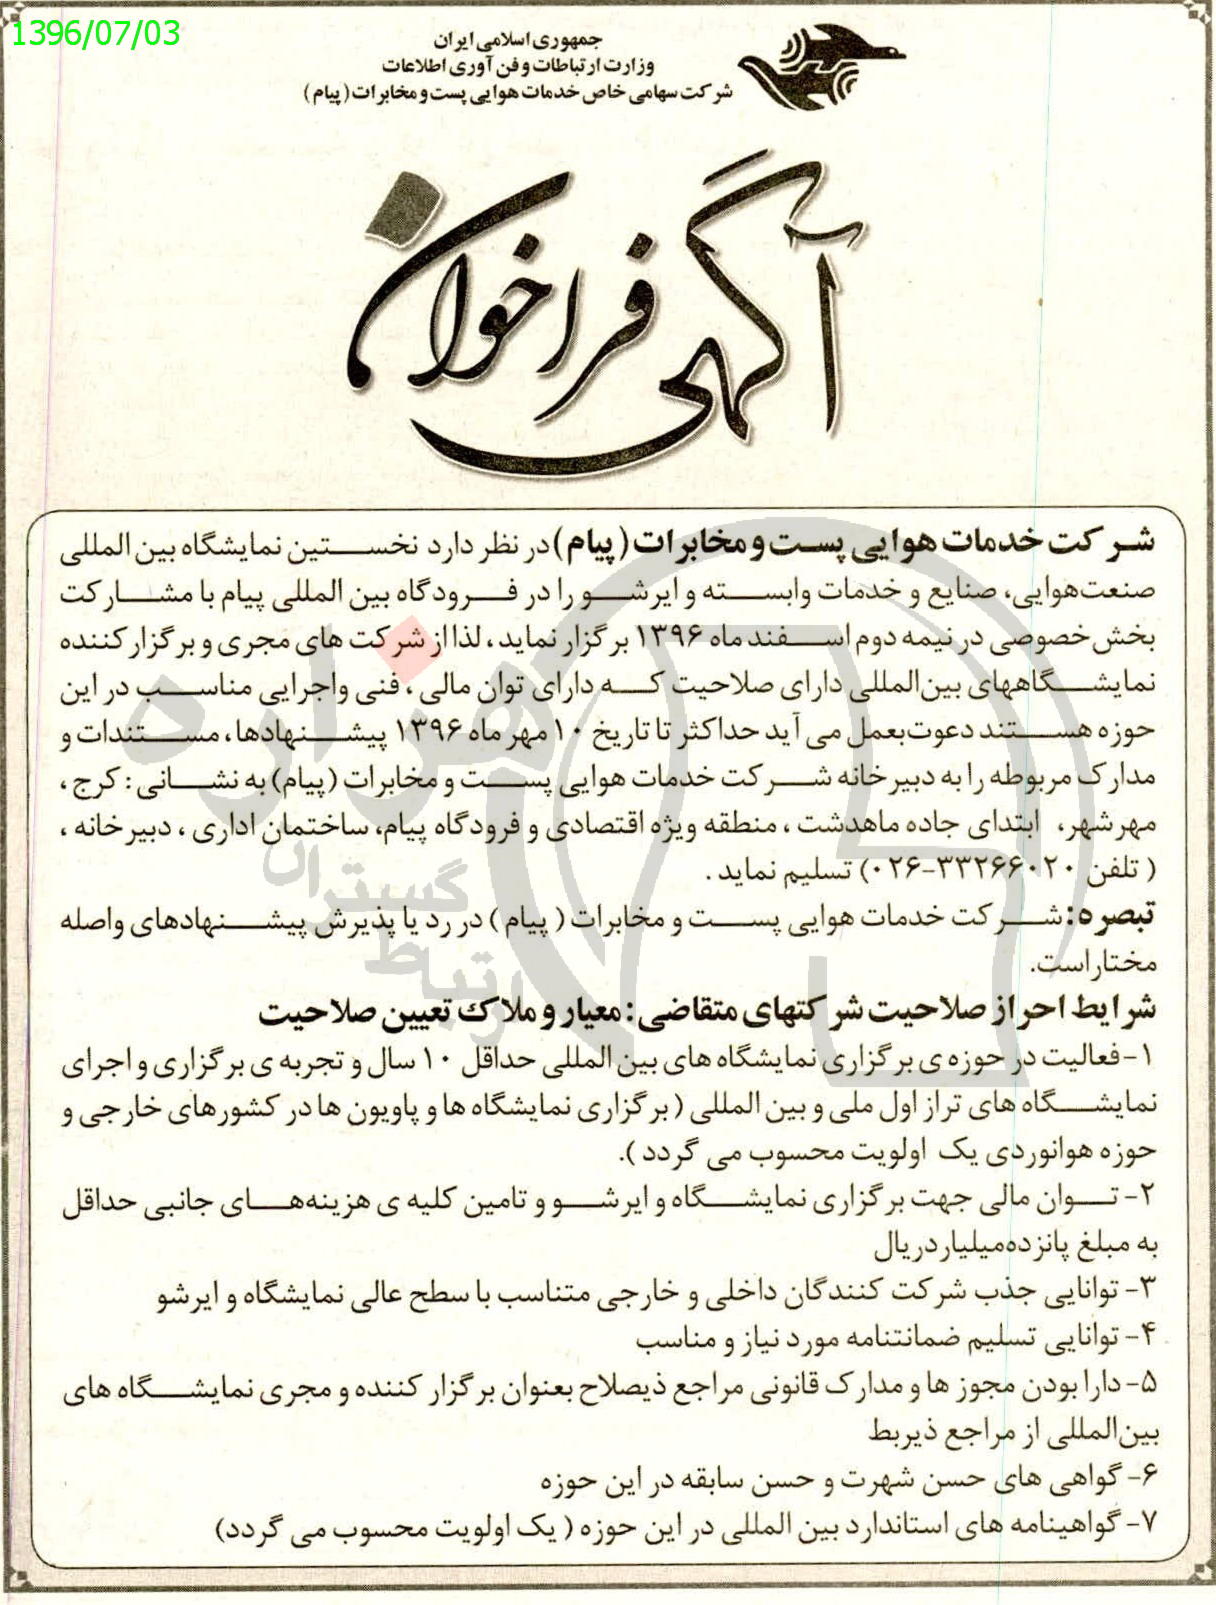 1396/07/03
جمهوری اسلامی ایران
وزارت ارتباطات و فن آوری اطلاعات
شرکت سهامی خاص خدمات هوایی پست و مخابرات (پیام)
آگهی فراخوان
شرکت خدمات هوایی پست و مخابرات (پیام) در نظر دارد نخستین نمایشگاه بین المللی
صنعت هوایی، صنایع و خدمات وابسته و ایرشو را در فرودگاه بین المللی پیام با مشارکت
بخش خصوصی در نیمه دوم اسفند ماه ۱۳۹۶ برگزار نماید، لذا از شرکت های مجری و برگزار کننده
نمایشگاههای بین‌المللی دارای صلاحیت که دارای توان مالی، فنی واجرایی مناسب در این
حوزه هستند دعوت بعمل می آید حداکثر تا تاریخ ۱۰ مهر ماه ۱۳۹۶ پیشنهادها، مستندات و
مدارک مربوطه را به دبیرخانه شرکت خدمات هوایی پست و مخابرات (پیام) به نشانی: کرج،
مهرشهر، ابتدای جاده ماهدشت، منطقه ویژه اقتصادی و فرودگاه پیام، ساختمان اداری، دبیرخانه،
( تلفن ۳۳۲۶۶۰۲۰-۰۲۶) تسلیم نماید.
تبصره: شرکت خدمات هوایی پست و مخابرات ( پیام ) در رد یا پذیرش پیشنهادهای واصله
مختار است.
شرایط احراز صلاحیت شرکتهای متقاضی: معیار و ملاک تعیین صلاحیت
۱- فعالیت در حوزه ی برگزاری نمایشگاه های بین المللی حداقل ۱۰ سال و تجربه ی برگزاری و اجرای
نمایشگاه های تراز اول ملی و بین المللی (برگزاری نمایشگاه ها و پاویون ها در کشورهای خارجی و
حوزه هوانوردی یک اولویت محسوب می گردد ).
۲- توان مالی جهت برگزاری نمایشگاه و ایرشو و تامین کلیه ی هزینه‌های جانبی حداقل
به مبلغ پانزده‌میلیارد ریال
۳- توانایی جذب شرکت کنندگان داخلی و خارجی متناسب با سطح عالی نمایشگاه و ایرشو
۴- توانایی تسلیم ضمانتنامه مورد نیاز و مناسب
۵- دارا بودن مجوز ها و مدارک قانونی مراجع ذیصلاح بعنوان برگزار کننده و مجری نمایشگاه های
بین‌المللی از مراجع ذیربط
۶- گواهی های حسن شهرت و حسن سابقه در این حوزه
۷- گواهینامه های استاندارد بین المللی در این حوزه ( یک اولویت محسوب می گردد)
هزاره
گستران
ارتباط